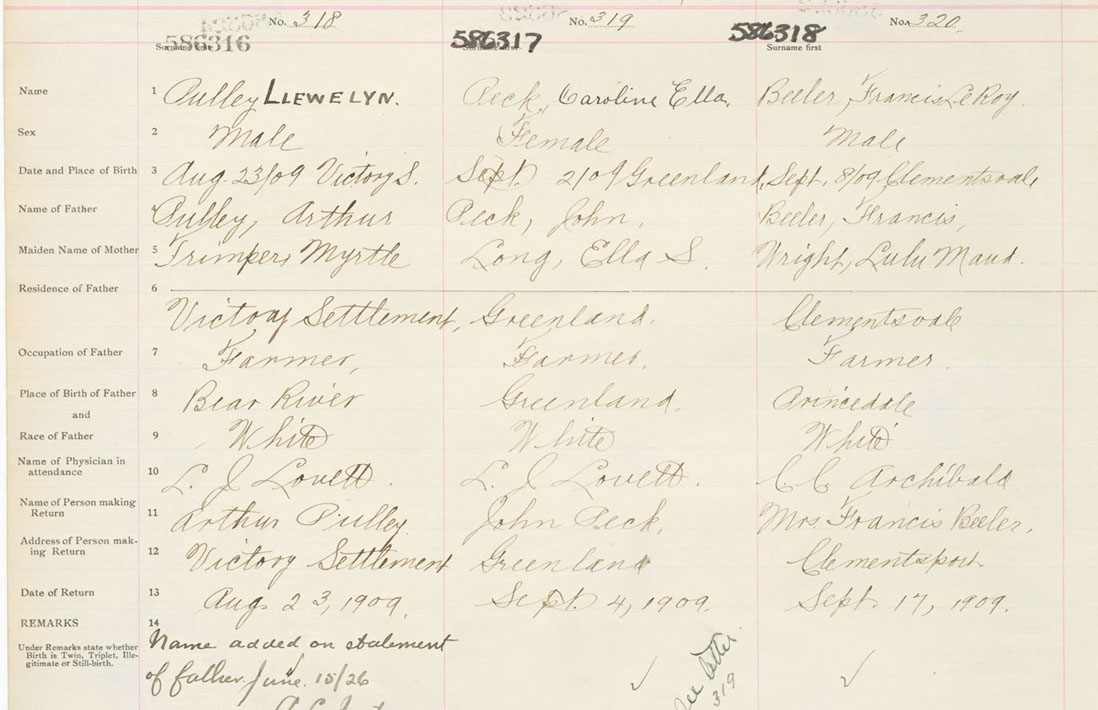 No. 318 No. 319 No. 320
586316 586317 586318
Surname first
Name 1 Pulley LLEWELYN. Peck, Caroline Ella, Beeler, Francis LeRoy.
Sex 2 Male Female Male
Date and Place of Birth 3 Aug. 23/09 Victory S. Sept. 2/09 Greenland, Sept. 8/09 Clementsvale
Name of Father 4 Pulley, Arthur Peck, John, Beeler, Francis,
Maiden Name of Mother 5 Trimper, Myrtle Long, Ella S. Wright, Lulu Maud.
Residence of Father 6
Victory Settlement, Greenland. Clementsvale
Occupation of Father 7 Farmer, Farmer, Farmer.
Place of Birth of Father 8 Bear River Greenland, Princedale
and
Race of Father 9 White White White
Name of Physician in
attendance 10 L. J. Lovett. L. J. Lovett. C. C. Archibald
Name of Person making
Return 11 Arthur Pulley John Peck, Mrs. Francis Beeler,
Address of Person mak-
ing Return 12 Victory Settlement Greenland Clementsport
Date of Return 13 Aug. 23, 1909, Sept. 4, 1909. Sept. 17, 1909.
REMARKS 14
Name added on statement
Under Remarks state whether
Birth is Twin, Triplet, Ille-
gitimate or Still-birth.
of father June. 15/26
See letter.
319